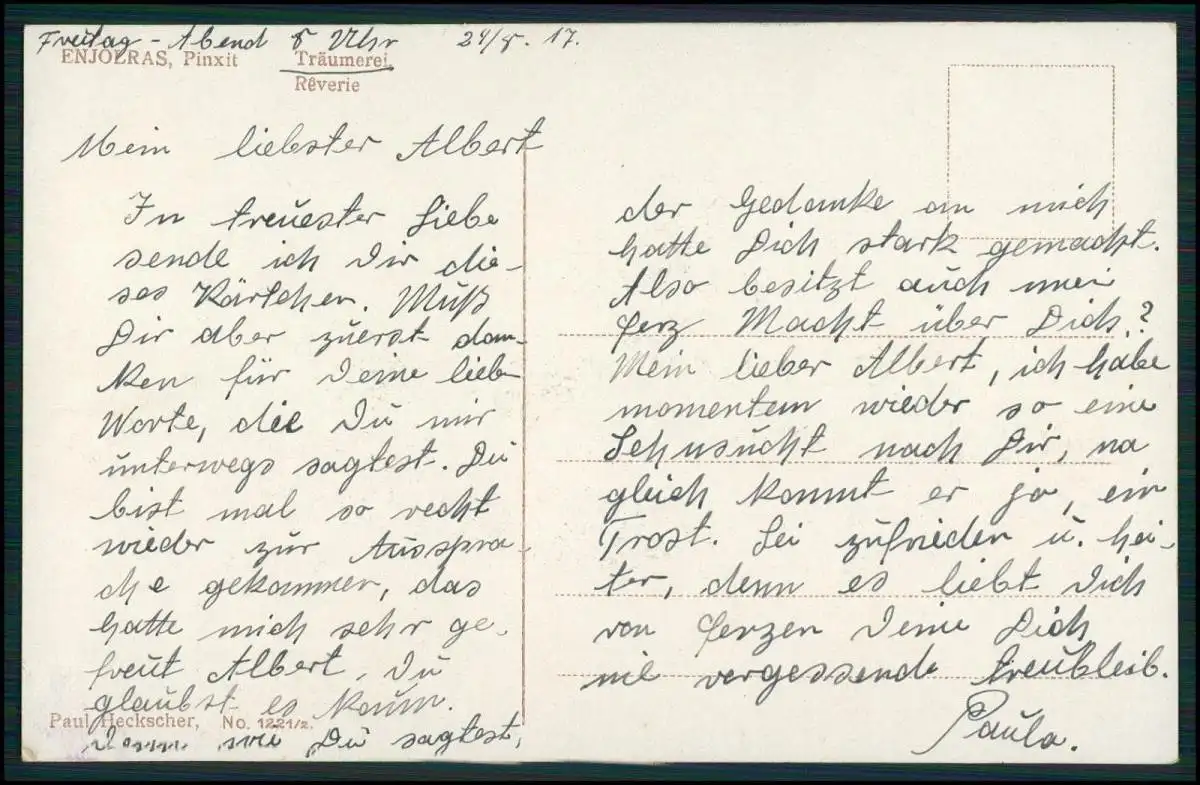 Freitag - Abend 8 Uhr 24/8. 17.
ENJOLRAS, Pinxit Träumerei
Rêverie
Mein liebster Albert
In treuester Liebe
sende ich Dir die-
ses Kärtchen. Muß
Dir aber zuerst dan-
ken für Deine lieb
Worte, die Du mir
unterwegs sagtest. Du
bist mal so recht
wieder zur Ausspra-
che gekommen, das
hatte mich sehr ge-
freut Albert, Du
glaubst es kaum.
Denn wie Du sagtest,
Paul Heckscher, No. 1221/2.
der Gedanke an mich
hatte Dich stark gemacht.
Also besitzt auch mein
Herz Macht über Dich?
Mein lieber Albert, ich habe
momentan wieder so eine
Sehnsucht nach Dir, na
gleich kommt er ja, ein
Trost. Sei zufrieden u. hei-
ter, denn es liebt Dich
von Herzen Deine Dich
nie vergessende treubleib.
Paula.